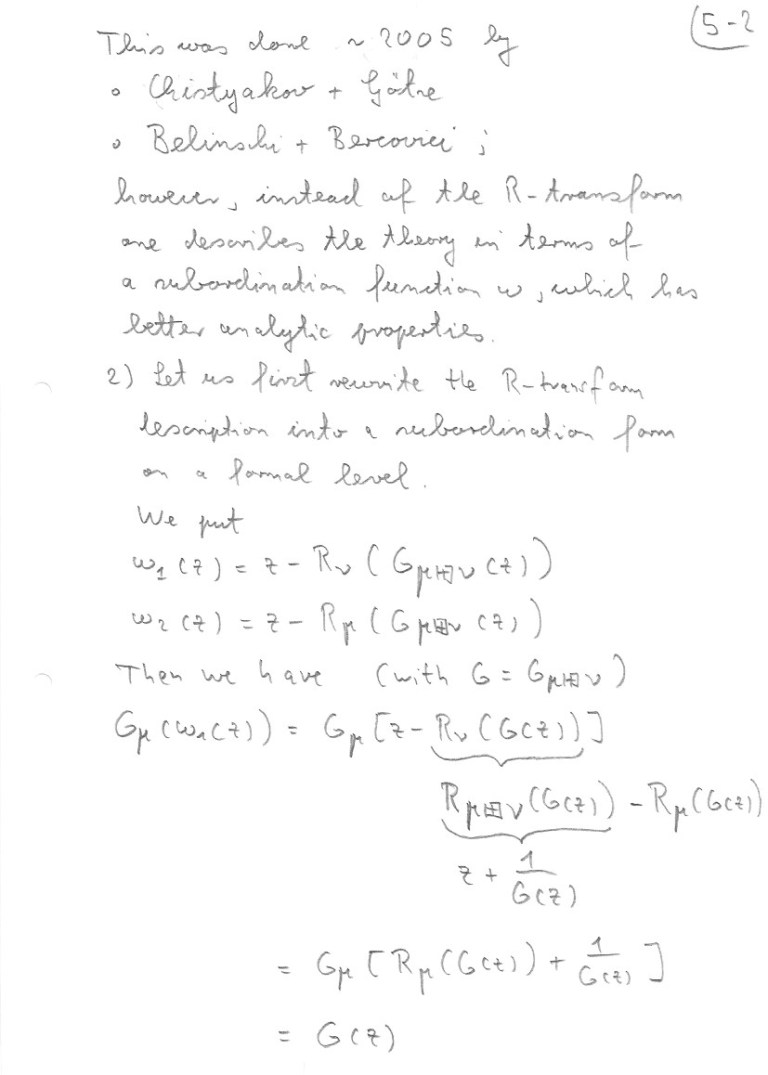 (5-2
This was done ~ 2005 by
∘ Chistyakov + Götze
∘ Belinschi + Bercovici ;
however, instead of the R-transform
one describes the theory in terms of
a subordination function ω, which has
better analytic properties.
2) Let us first rewrite the R-transform
description into a subordination form
on a formal level.
We put
ω₁(z) = z - R_ν ( G_{μ⊞ν} (z) )
ω₂(z) = z - R_μ ( G_{μ⊞ν} (z) )
Then we have (with G = G_{μ⊞ν})
G_μ(ω₁(z)) = G_μ [z - R_ν(G(z))]
R_{μ⊞ν}(G(z)) - R_μ(G(z))
z + 1/G(z)
= G_μ [ R_μ(G(z)) + 1/G(z) ]
= G(z)